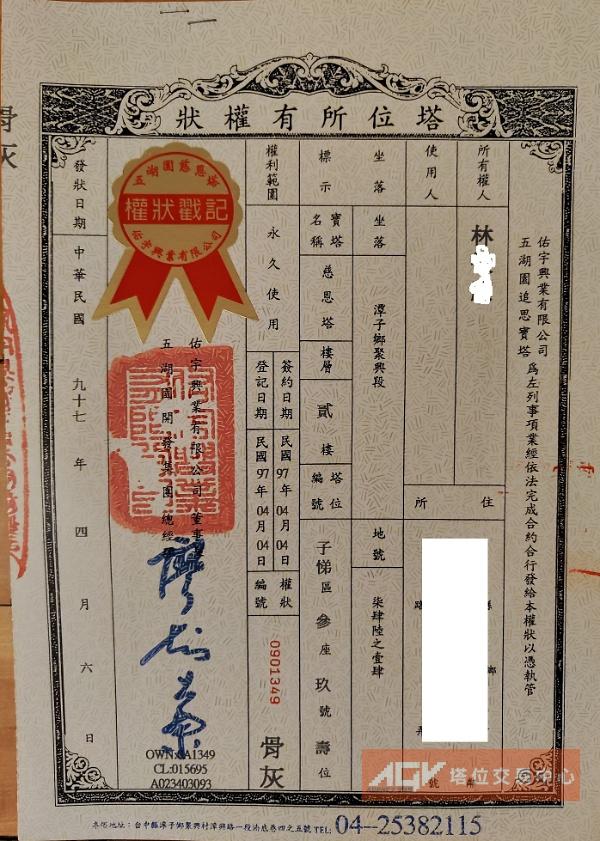 塔位所有權狀
佑宇興業有限公司
五湖園追思寶塔
為左列事項業經依法完成合約合行發給本權狀以憑執管
所有權人
林
住所
使用人
坐落
坐落
潭子鄉聚興段
地號
柒肆陸之壹肆
標示
寶塔名稱
慈恩塔
樓層
貳樓
塔位編號
子悌區參座玖號壽位
權利範圍
永久使用
簽約日期
民國97年04月04日
登記日期
民國97年04月04日
權狀編號
0901349
骨灰
五湖園慈恩塔
權狀戳記
佑宇興業有限公司
佑宇興業有限公司董事
五湖園開發集團總經
發狀日期
中華民國九十七年四月六日
OWN:GA1349
CL:015695
A023403093
AGV塔位交易中心
號
TEL:
04--25382115
骨灰